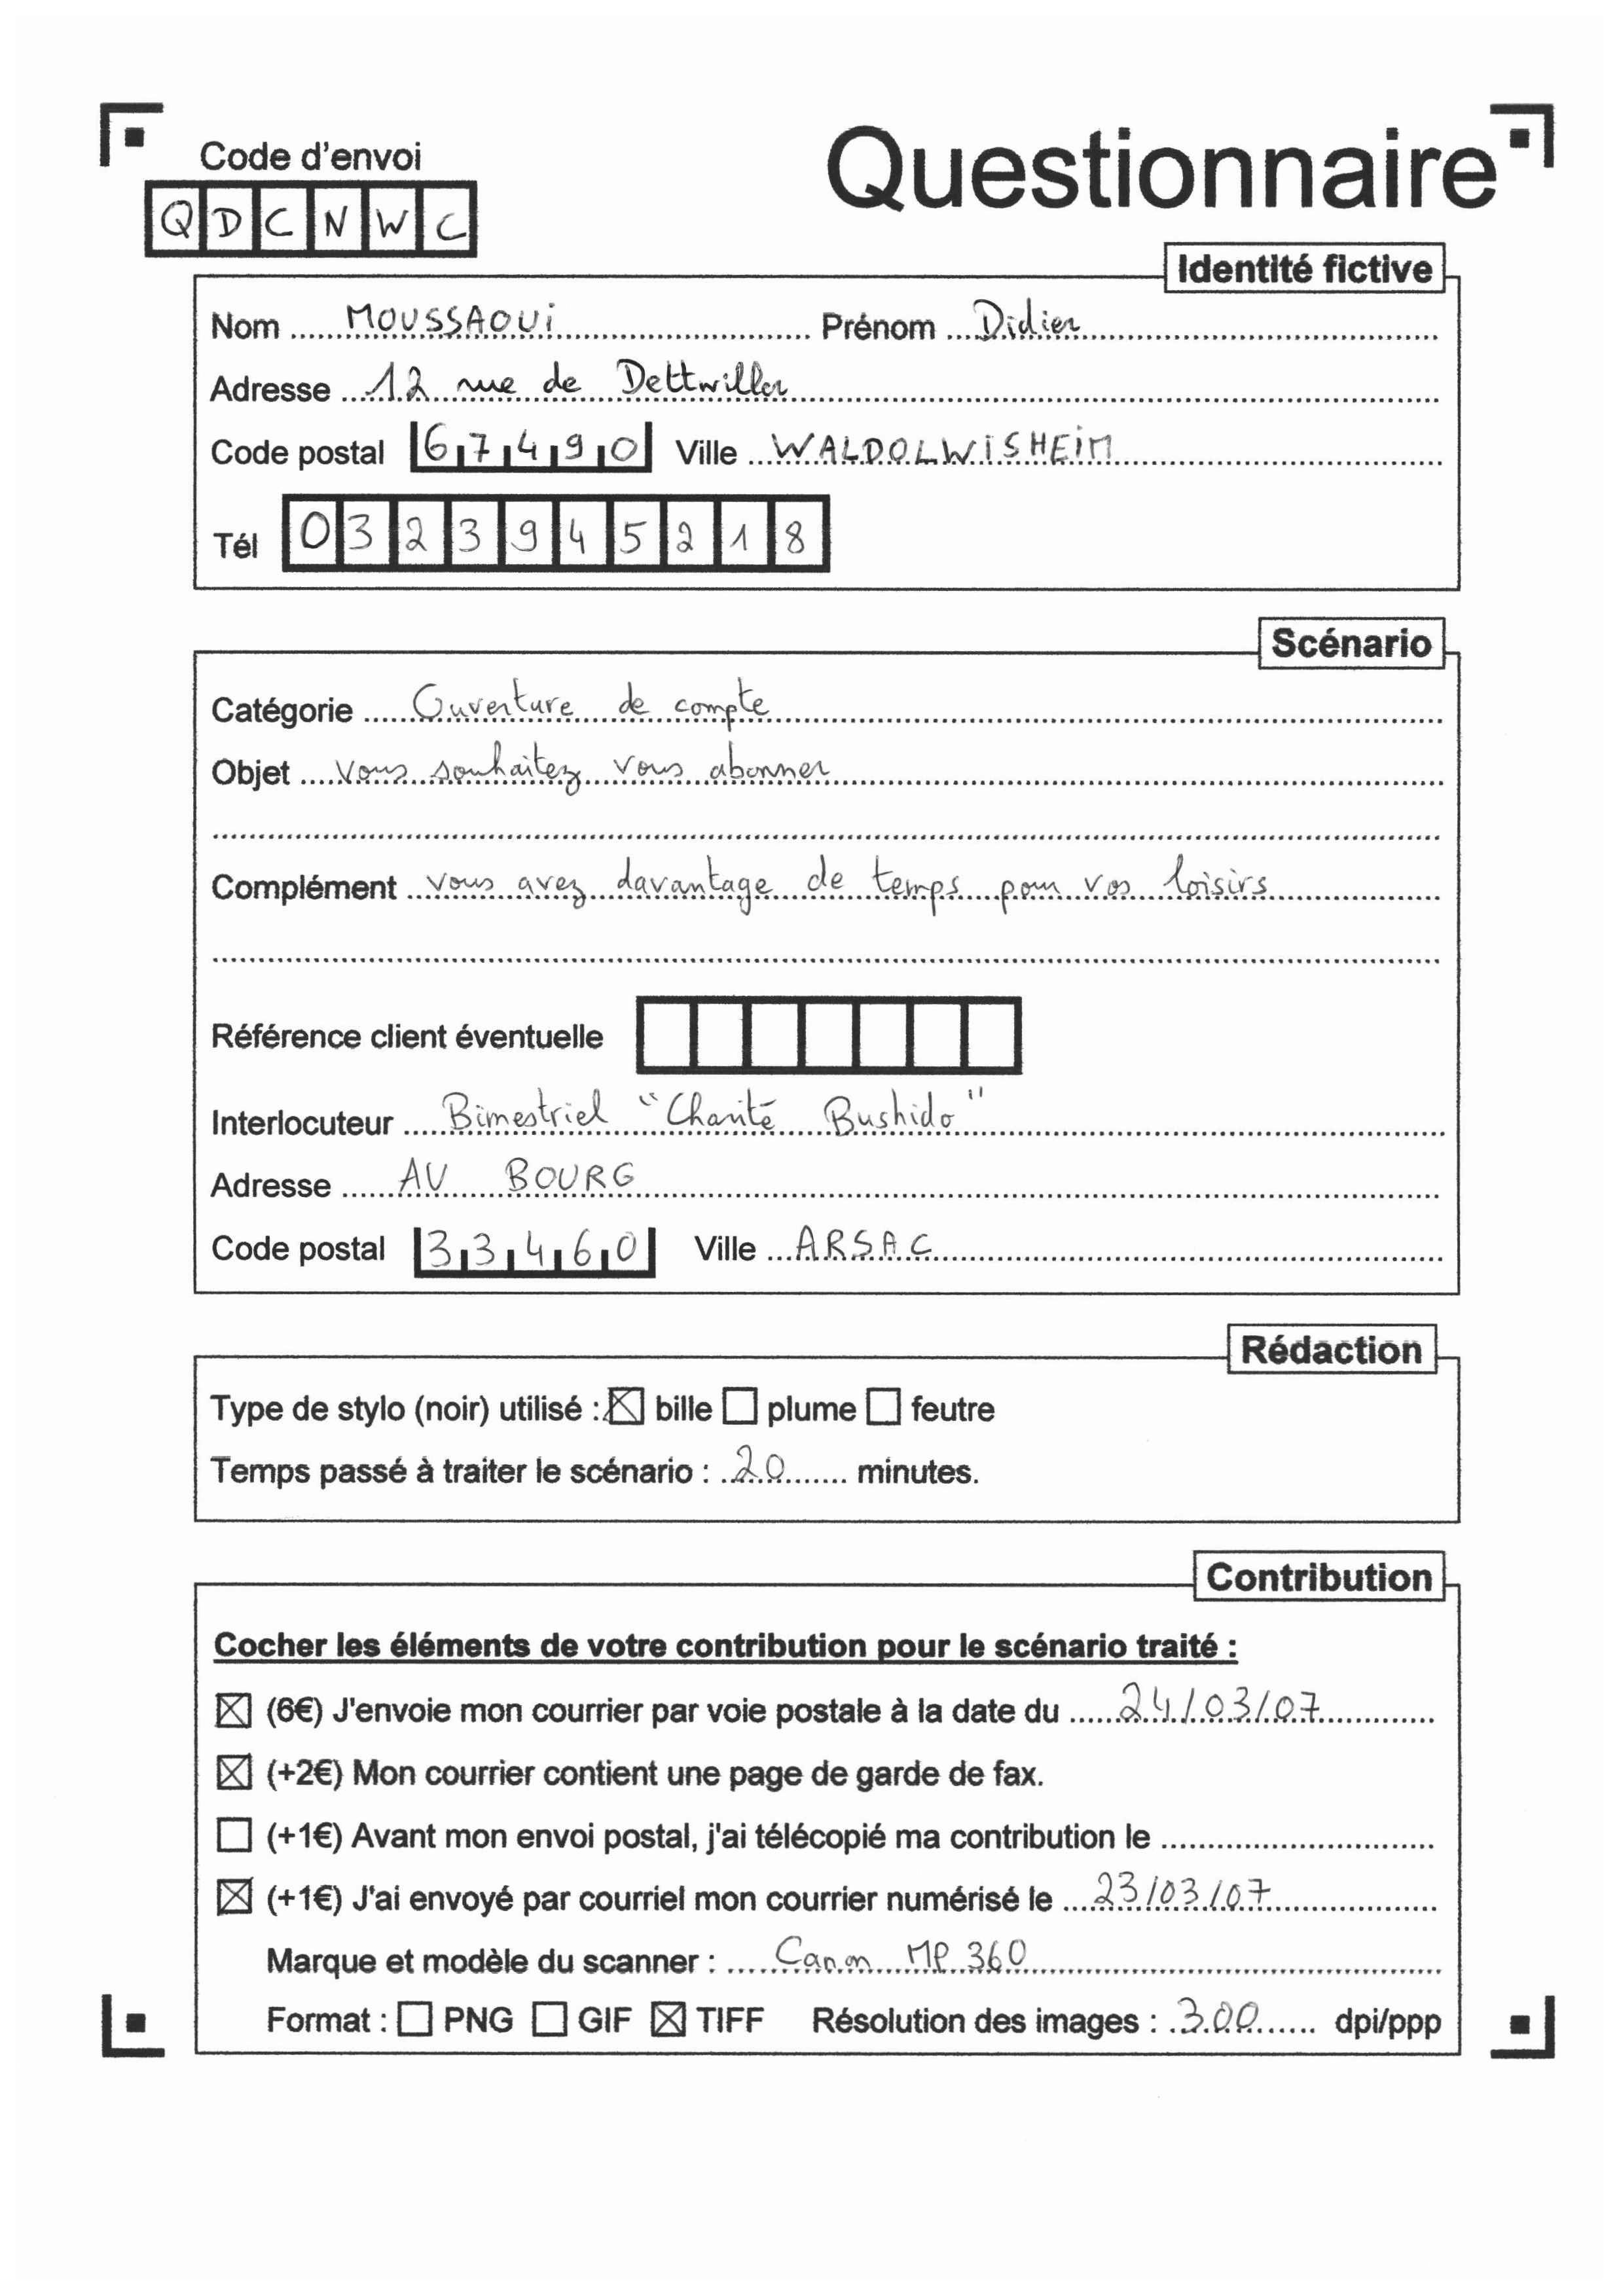 Questionnaire
Code d'envoi
QDCNWC
Identité fictive
Nom MOUSSAOUi Prénom Didier
Adresse 12 rue de Dettwiller
Code postal 67490 Ville WALDOLWISHEIM
Tél 0323945218
Scénario
Catégorie Ouverture de compte
Objet Vous souhaitez vous abonner
Complément vous avez davantage de temps pour vos loisirs
Référence client éventuelle
Interlocuteur Bimestriel "Charité Bushido"
Adresse AU BOURG
Code postal 33460 Ville ARSAC
Rédaction
Type de stylo (noir) utilisé : ☒ bille ☐ plume ☐ feutre
Temps passé à traiter le scénario : 20 minutes.
Contribution
Cocher les éléments de votre contribution pour le scénario traité :
☒ (6€) J'envoie mon courrier par voie postale à la date du 24/03/07
☒ (+2€) Mon courrier contient une page de garde de fax.
☐ (+1€) Avant mon envoi postal, j'ai télécopié ma contribution le
☒ (+1€) J'ai envoyé par courriel mon courrier numérisé le 23/03/07
Marque et modèle du scanner : Canon MP 360
Format : ☐ PNG ☐ GIF ☒ TIFF Résolution des images : 300 dpi/ppp